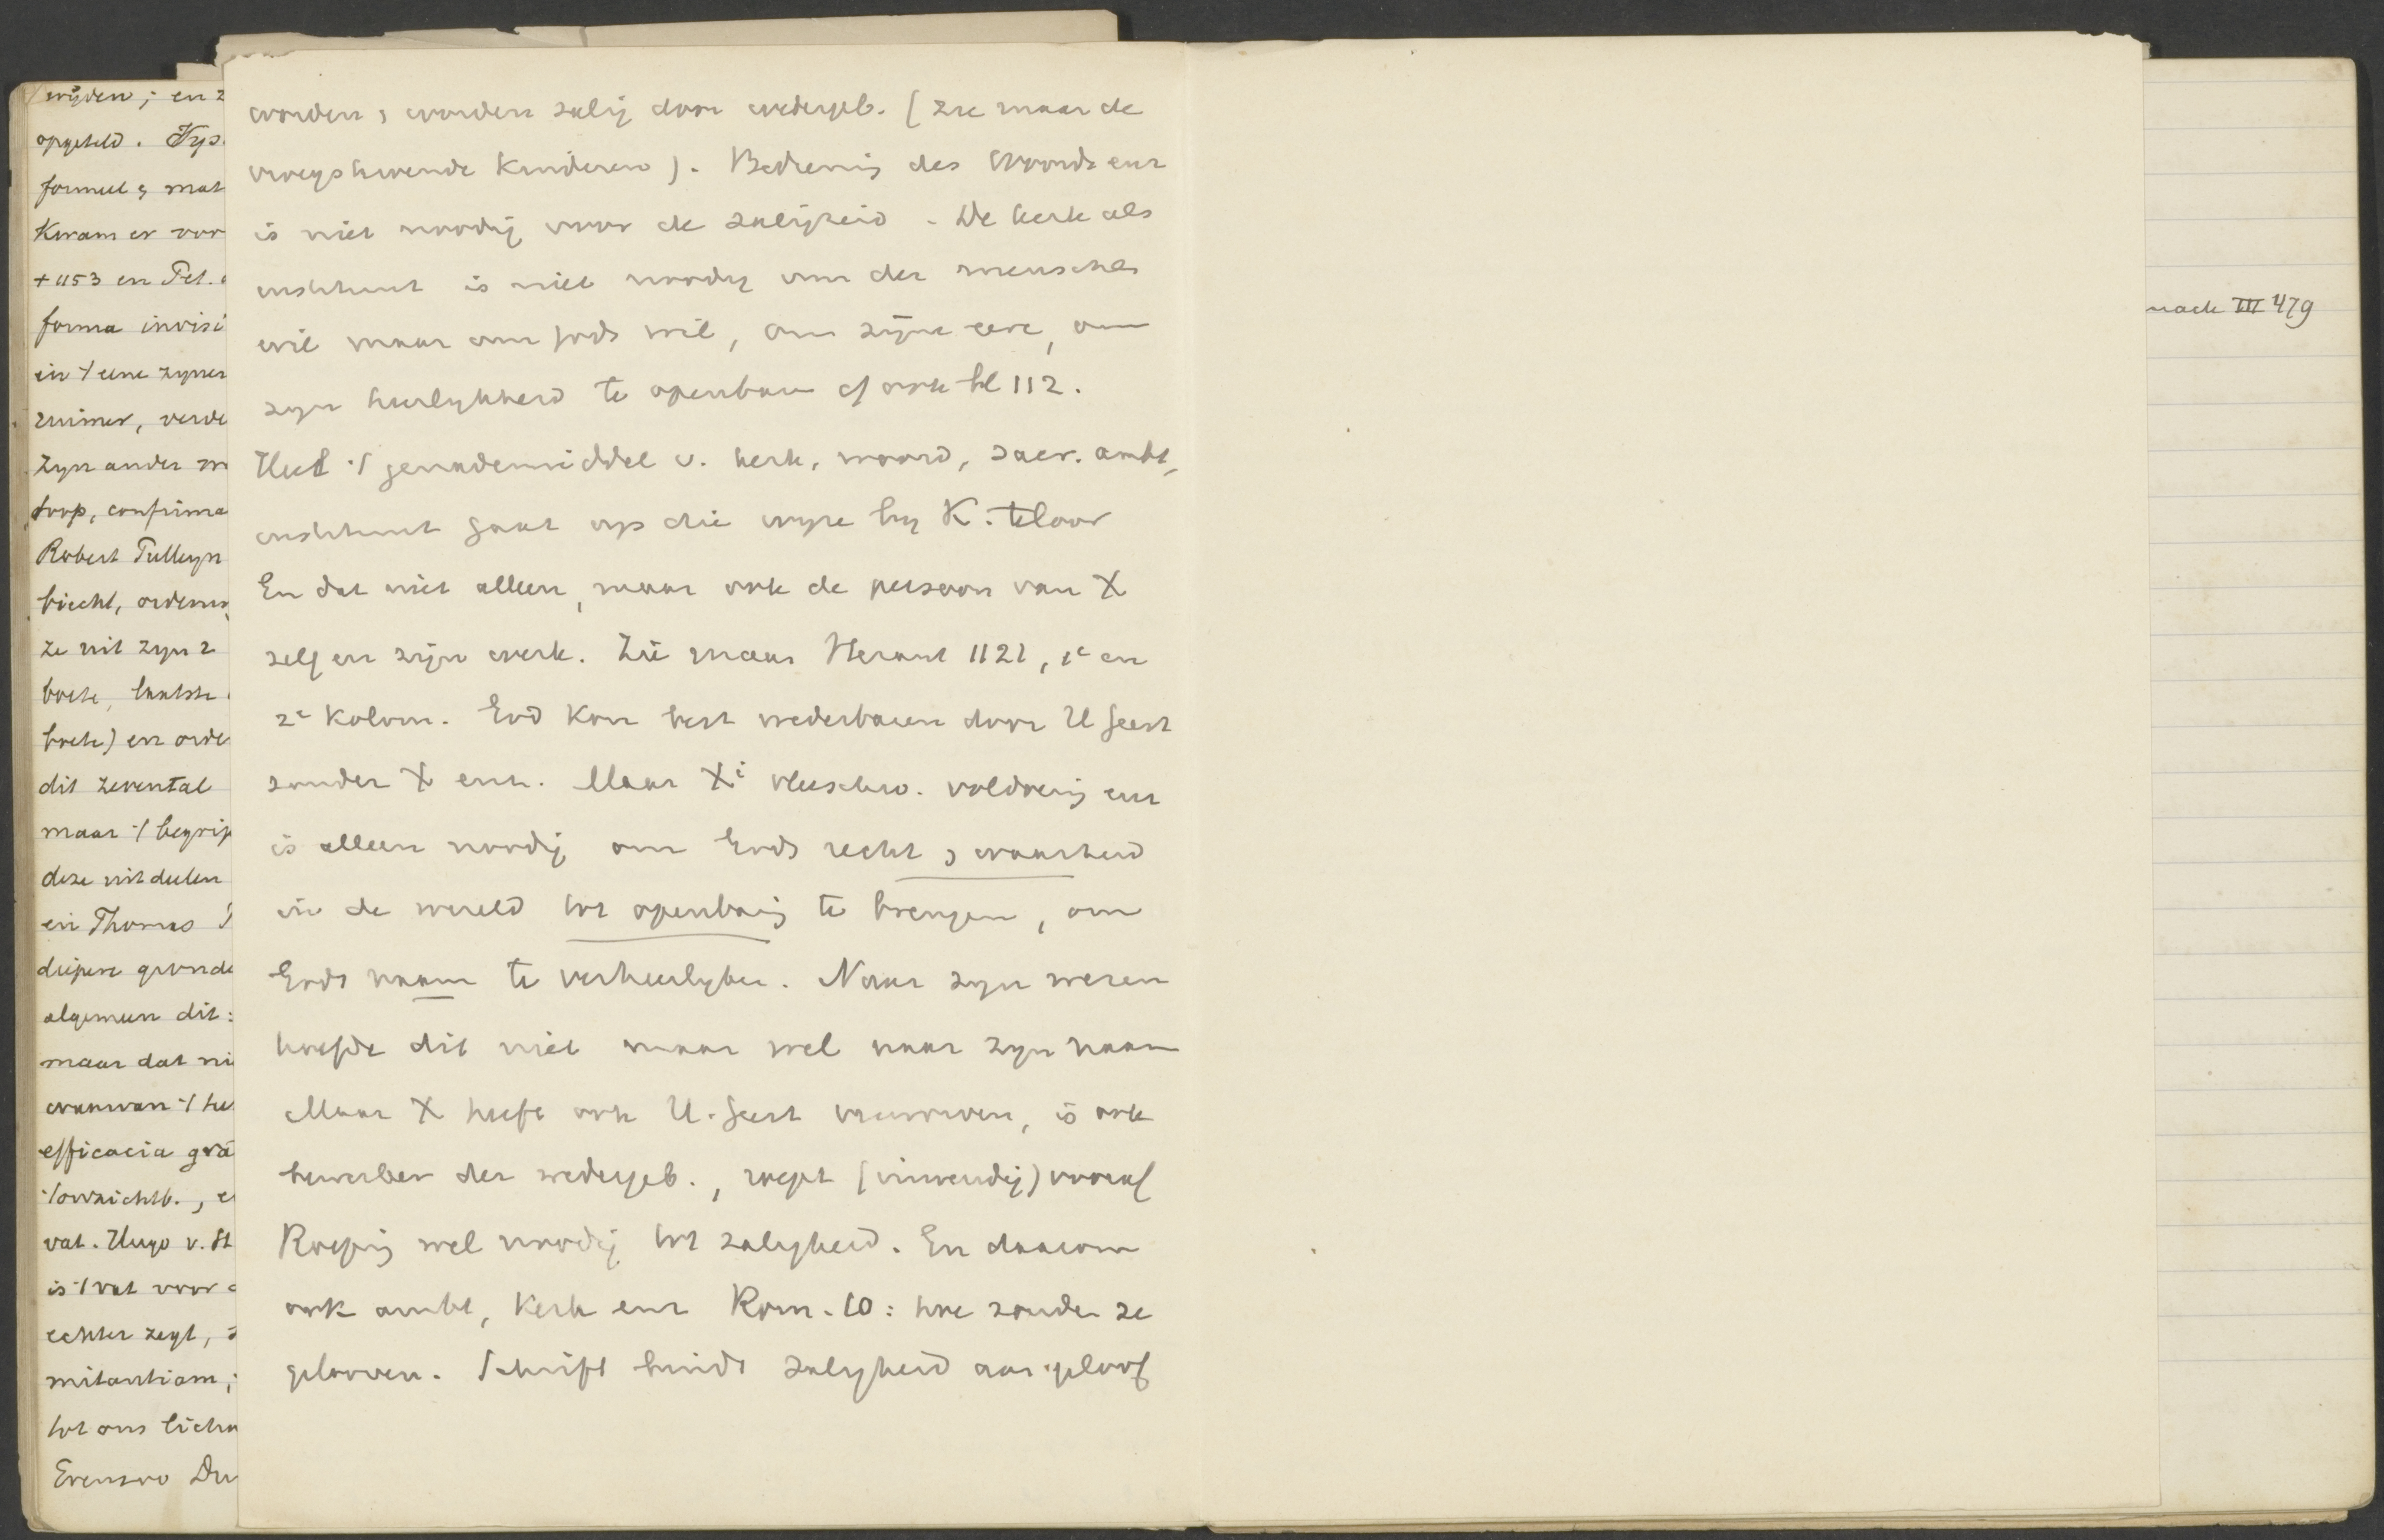 wijden; en z
opgeteld. Hyp.
formeel & mat
Kwam er voor
+ 1153 en Pet.
forma invisi
in 't eene zyner
ruimer, verde
Zyn ander
doop, confirma
Robert Pulleyn
biecht, ordening
Ze uit zyn 2
boete, laatste
boete) en orde
dit zevental
maar 't begrip
deze uit deelen
en Thomas
diepere gronde
algemeen dit:
maar dat ni
waarvan 't
efficacia gra
't onzichtb., e
vat. Hugo v. St
is 't vat voor
echter zegt,
mitantiam;
tot ons licha
Evenzoo Du
worden, worden zalig door wedergeb. (zie maar de
vroegstervende Kinderen). Bediening des Woords enz
is niet noodig voor de zaligheid. De kerk als
instituut is niet noodig om der menschen
wil maar om Gods wil, om zijne eere, om
zyn heerlykheid te openbaren cf ook bl 112.
Heel 't genademiddel v. kerk, woord, sacr. ambt,
instituut gaat op die wyze by K. teloor
En dat niet alleen, maar ook de persoon van X
zelf en zijn werk. Zie maar Heraut 1121, 1e en
2e Kolom. God kon best wederbaren door H Geest
zonder X enz. Maar Xi vleeschw. voldoening enz
is alleen noodig om Gods recht & waarheid
in de wereld tot openbaring te brengen, om
Gods naam te verheerlyken. Naar zyn wezen
hoefde dit niet maar wel naar zyn naam
Maar X heeft ook H. Geest verworven, is ook
bewerker der wedergeb., roept (inwendig) vooraf
Roeping wel noodig tot zaligheid. En daarom
ook ambt, Kerk enz Rom. 10: hoe zouden ze
gelooven. Schrift bindt zaligheid aan geloof
nack III 479